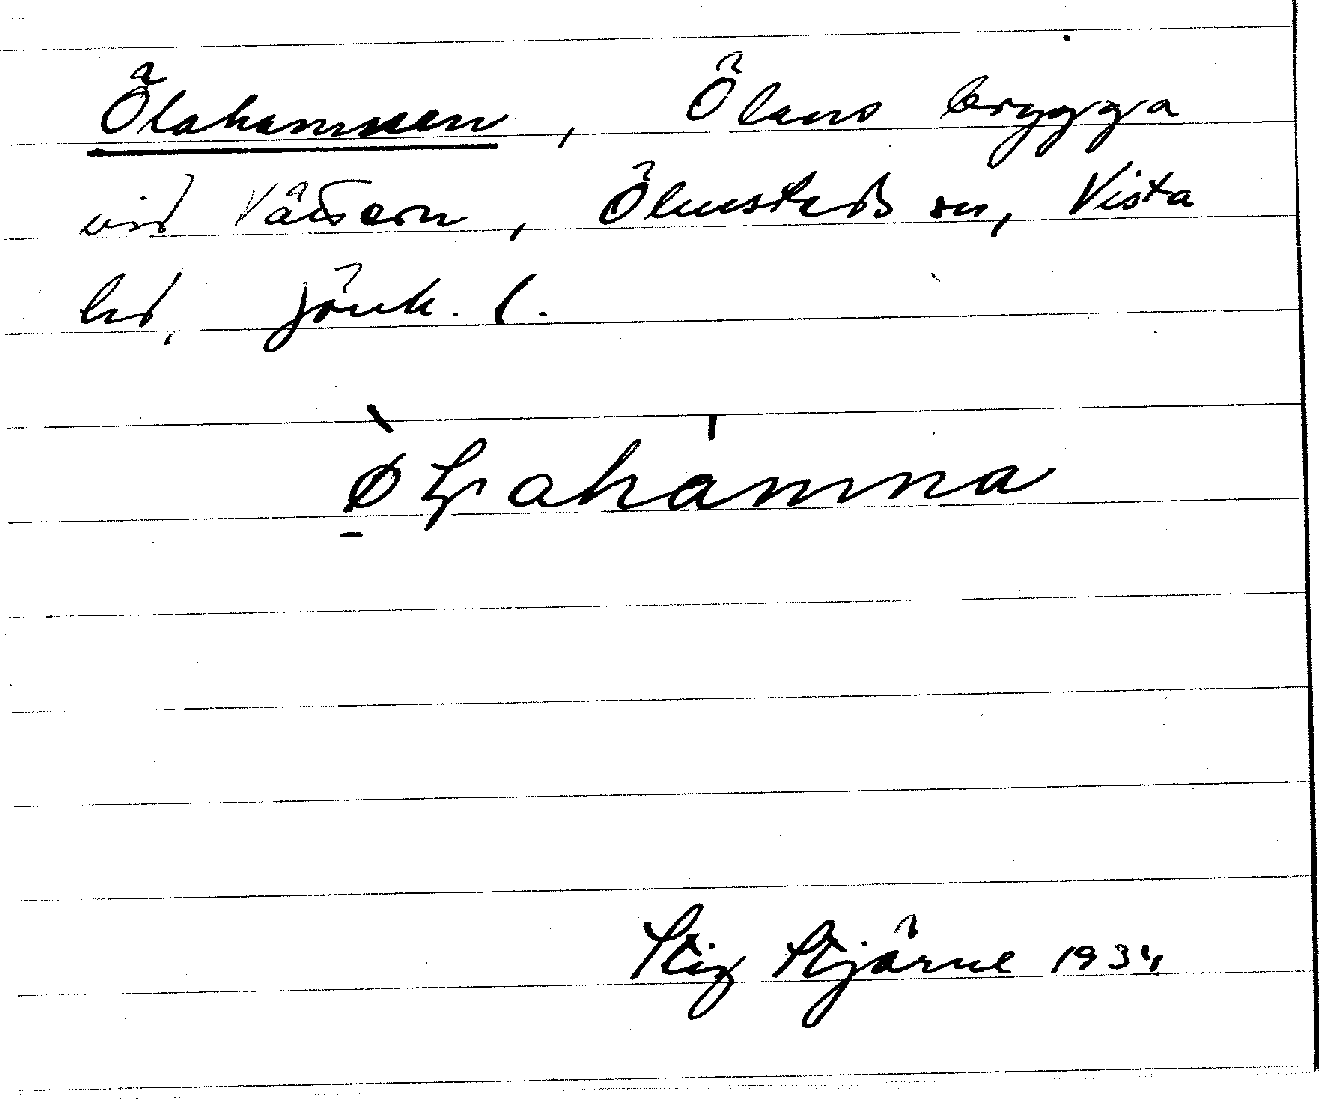 Ölahamnen, Ölens brygga
vid Vättern, Ölmstads sn, Vista
hd, Jönk. l.
Stig Stjärne 1934